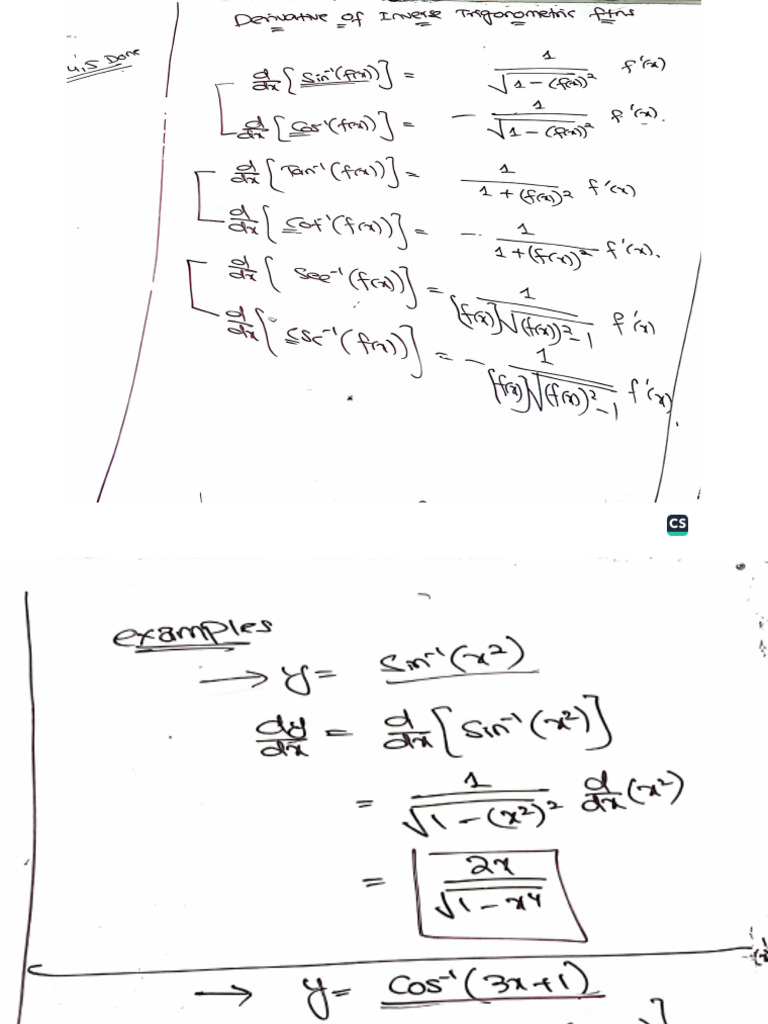 Derivative of Inverse Trigonometric ftns
4.5 Done
d/dx [Sin⁻¹(f(x))] = 1/√(1-(f(x))²) f'(x)
d/dx [Cos⁻¹(f(x))] = - 1/√(1-(f(x))²) f'(x).
d/dx [Tan⁻¹(f(x))] = 1/(1+(f(x))²) f'(x)
d/dx [Cot⁻¹(f(x))] = - 1/(1+(f(x))²) f'(x).
d/dx [Sec⁻¹(f(x))] = 1/([f(x)]√((f(x))²-1)) f'(x)
d/dx [CSC⁻¹(f(x))] = - 1/([f(x)]√((f(x))²-1)) f'(x).
CS
examples
→ y = Sin⁻¹(x²)
dy/dx = d/dx [Sin⁻¹(x²)]
= 1/√(1-(x²)²) d/dx (x²)
= 2x/√(1-x⁴)
→ y = Cos⁻¹(3x+1)